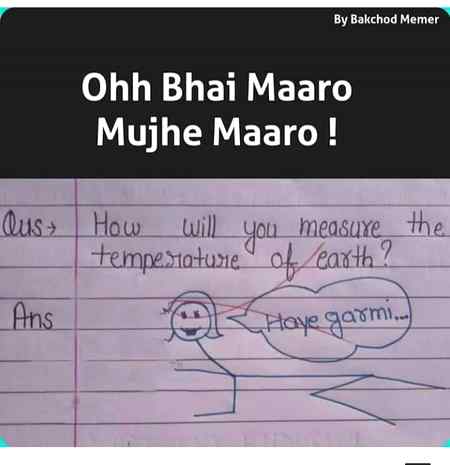 By Bakchod Memer
Ohh Bhai Maaro
Mujhe Maaro !
Qus→ How will you measure the
temperature of earth?
Ans
Haye garmi...